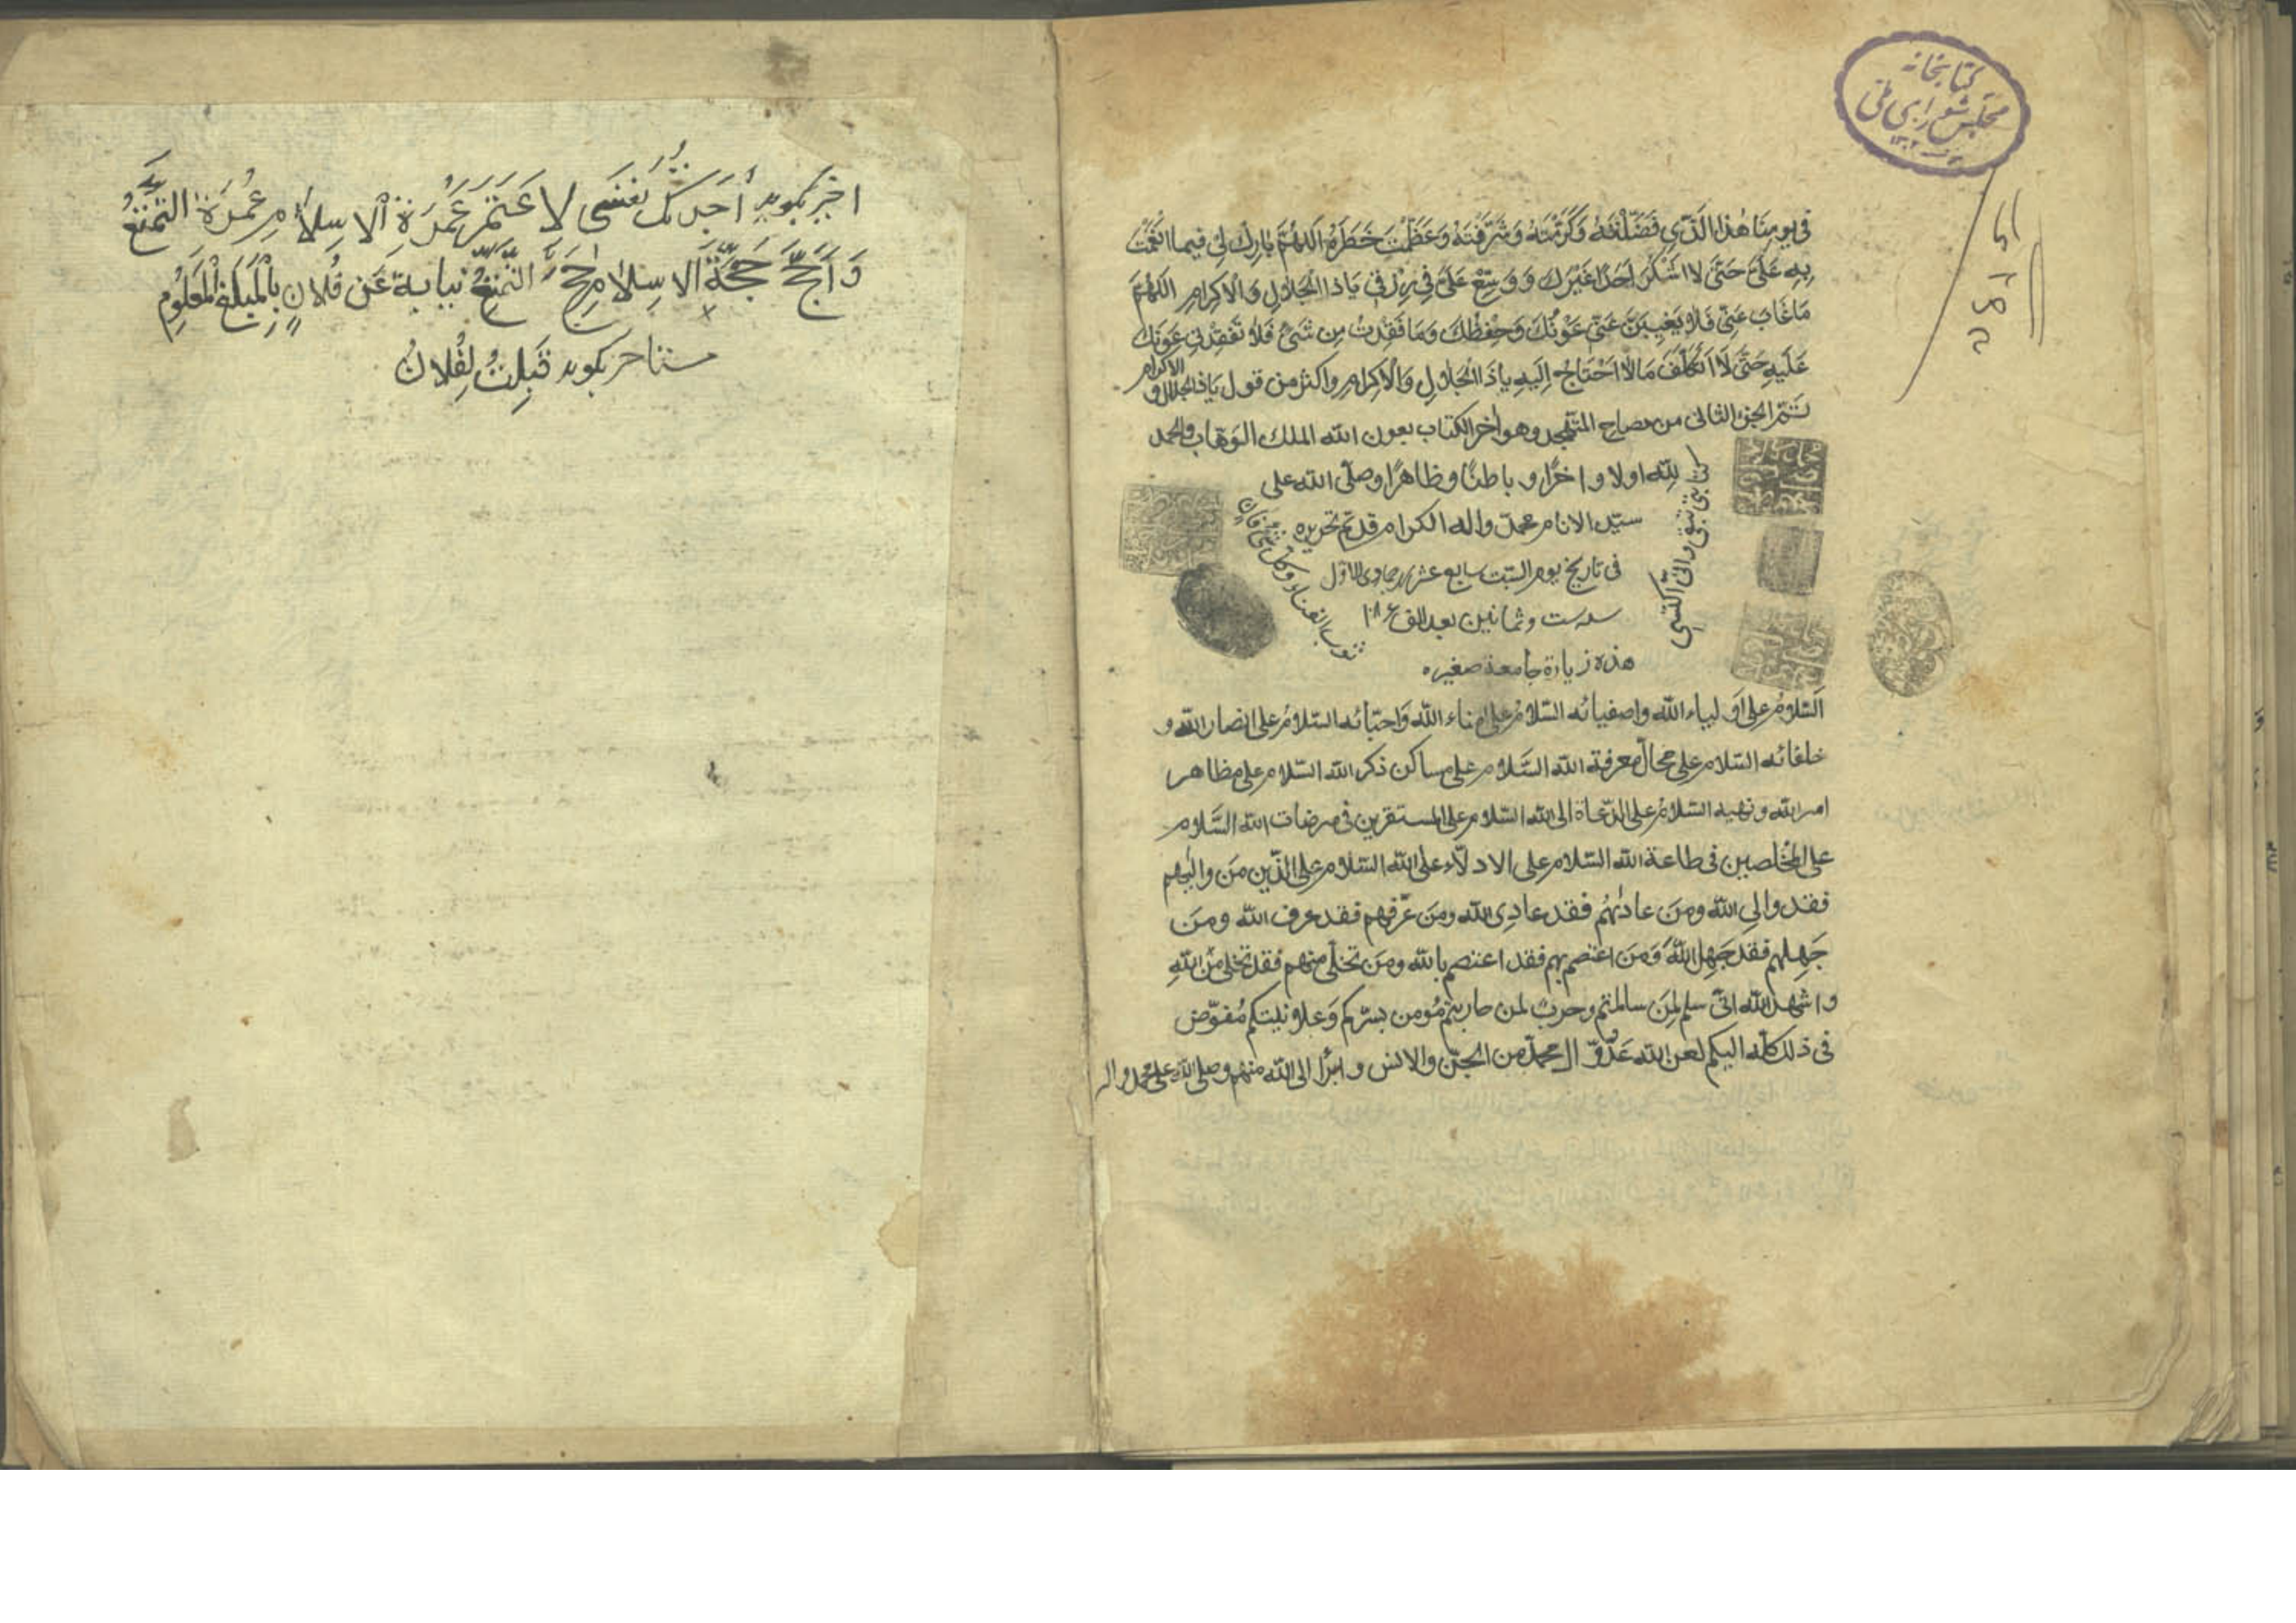 كتابخانه
مجلس شورای ملی
۱۳۰۲
فى يومنا هٰذا الَّذي فَضَّلْتَهُ وَكَرَّمْتَهُ وَشَرَّفْتَهُ وَعَظَّمْتَ خَطَرَهُ اللهُمَّ بٰارِك لى فيما انعَمْتَ
بِهِ عَلَىَّ حَتّى لا اَشْكُرَ اَحَدًا غَيْرَكَ وَ وَسِّعْ عَلَىَّ فى رِزْقى يٰاذا الْجَلالِ وَالْاِكرامِ اللهُمَّ
مٰا غٰابَ عَنّى فَلا يَغيبَنَّ عَنّى عَوْنُكَ وَحِفْظُكَ وَمٰا فَقَدْتُ مِن شَىْءٍ فَلا تُفقِدْنى عَوْنَكَ
عَلَيهِ حَتّى لَا اَتَكَلَّفَ مٰا لا اَحْتٰاجُ اِلَيهِ يا ذَا الْجَلالِ وَالْاِكرامِ واكثر من قول يٰاذا الجلال و الاكرام
تمّ الجزء الثانى من مصباح المتهجد وهو اخر الكتاب بعون الله الملك الوهاب والحمد
لله اولا و اخرًا و باطنًا وظاهرًا وصلّى الله على
سيّد الانام محمد واله الكرام قد تم تحريره
فى تاريخ يوم السبت سابع عشر جمادى الاول
سنه ست و ثمانين بعد الف ۱۰۸۶
هذه زيارة جامعة صغيره
اَلسّلامُ على اَولياء الله واصفيائه السّلامُ على امناء الله وَاحبّائه السّلامُ على انصار الله و
خلفائه السّلام على محالّ معرفة الله السَّلام على مساكن ذكر الله السّلام على مظاهر
امر الله و نهيه السّلامُ على الدّعاة الى الله السّلام على المستقرين فى مرضات الله السَّلام
على المخلصين فى طاعة الله السّلام على الادلّاء على الله السّلام على الّذين مَن والٰيهم
فقد والى الله ومَن عادٰيهُم فقد عادى الله ومَن عَرَفهم فقد عرف الله ومَن
جَهِلهم فقد جَهِل اللهَ وَمَن اعتصم بهم فقد اعتصم بالله ومَن تخلّى منهم فقد تخلى من اللهِ
و اشهد الله انّى سلم لِمَن سالمتم وحربٌ لمن حاربتم مُؤمن بسرّكم وَعلانيتكم مُفوّض
فى ذلك كلّه اليكم لعن الله عَدُوّ ال محمدٍ من الجنّ والانس و ابرأ الى الله منهم وصلى الله على محمد و اله
اجير بگويد اَجَرتُكَ نَفسى لِاَعتَمَرَ عُمرَةَ الاِسلامِ عُمرَةَ التَّمَتُّعِ
وَ اَحُجَّ حَجَّةَ الاِسلامِ حَجَّ التَّمَتُّعِ نيابةً عَن فُلانٍ بِالْمَبلَغِ الْمَعلُومِ
مستاجر بگويد قَبِلتُ لِفُلانٍ